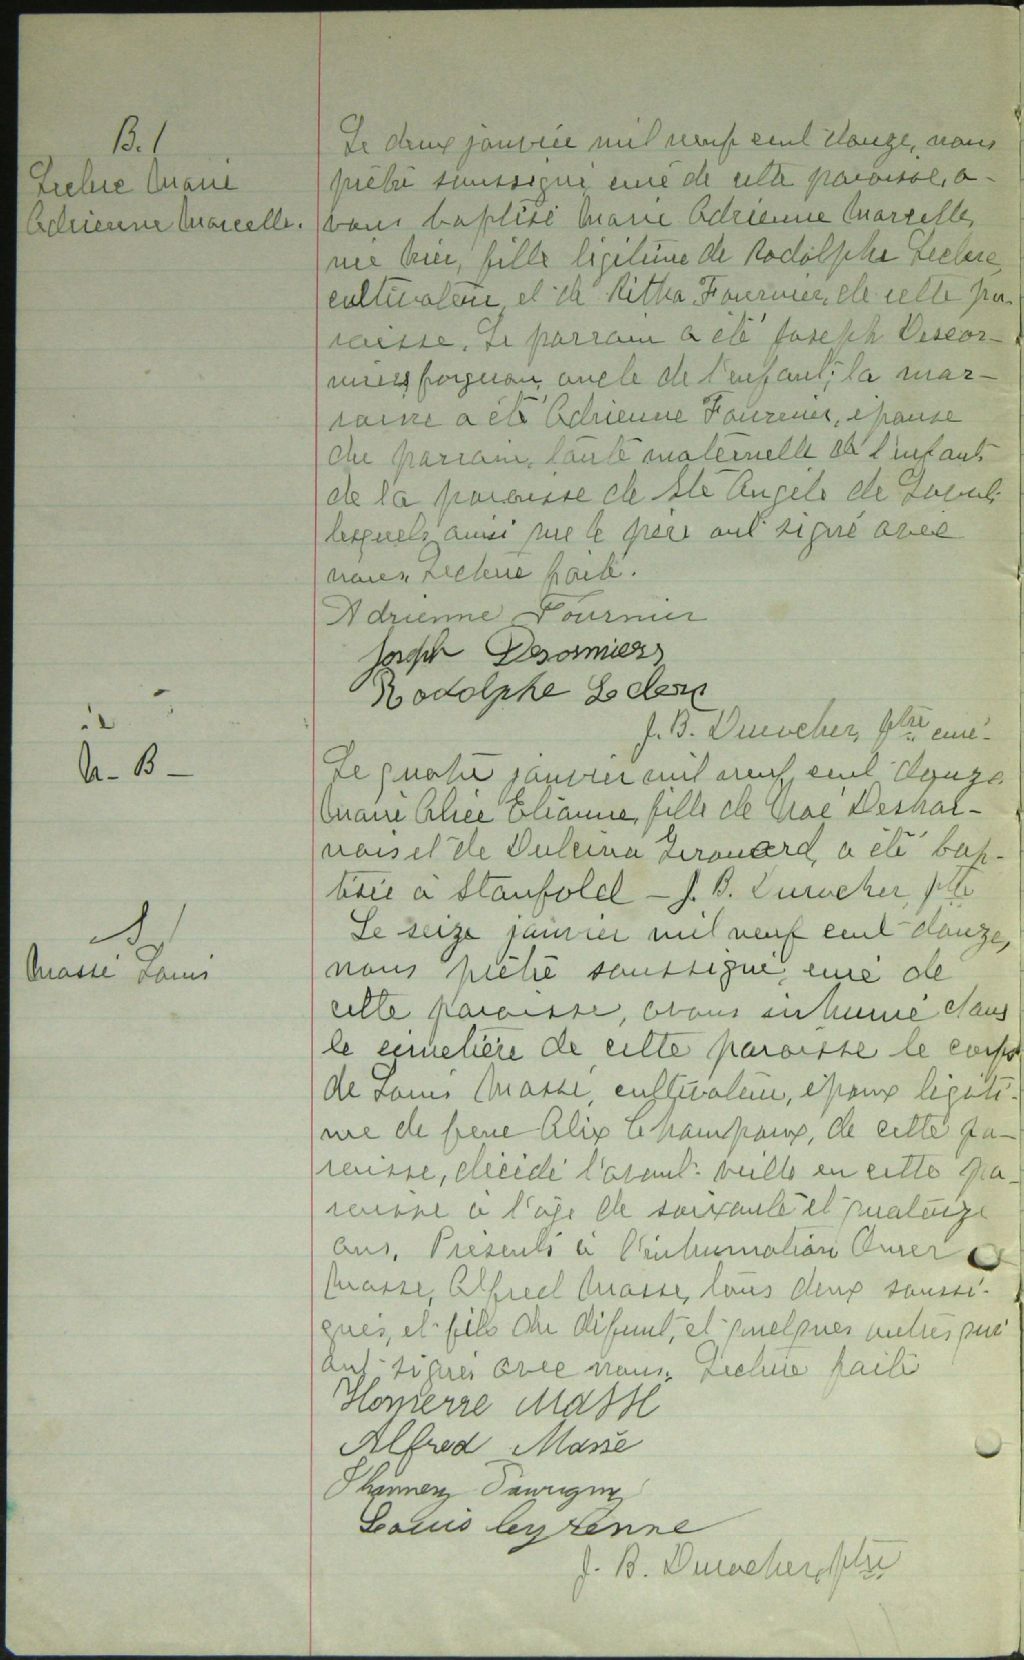 B. 1
Leclerc Marie
Adrienne Marcelle.
Le deux janvier mil neuf cent douze, nous
prêtre soussigné curé de cette paroisse, a-
vons baptisé Marie Adrienne Marcelle,
née hier, fille légitime de Rodolphe Leclerc,
cultivateur, et de Ritha Fournier, de cette pa-
roisse. Le parrain a été Joseph Desor-
miers, forgeron, oncle de l'enfant; la mar-
raine a été Adrienne Fournier, épouse
du parrain, tante maternelle de l'enfant
de la paroisse de Ste Angèle de Laval;
lesquels ainsi que le père ont signé avec
nous. Lecture faite.
Adrienne Fournier
Joseph Desormiers
Rodolphe Leclerc
J. B. Durocher, ptre curé-
N - B -
Le quatre janvier mil neuf cent douze
Marie Alice Elianne, fille de Noé Deshar-
nais et de Dulcina Girouard, a été bap-
tisée à Stanfold - J. B. Durocher, ptre
S 1
Massé Louis
Le seize janvier mil neuf cent douze,
nous prêtre soussigné, curé de
cette paroisse, avons inhumé dans
le cimetière de cette paroisse le corps
de Louis Massé, cultivateur, époux légiti-
me de feue Alix Champoux, de cette pa-
roisse, décédé l'avant-veille en cette pa-
roisse à l'âge de soixante et quatorze
ans. Présents à l'inhumation Omer
Masse, Alfred Masse, tous deux soussi-
gnés, et fils du défunt, et quelques autres qui
ont signé avec nous. Lecture faite
Homerre Massé
Alfred Massé
Louis Cyrenne
J. B. Durocher, ptre